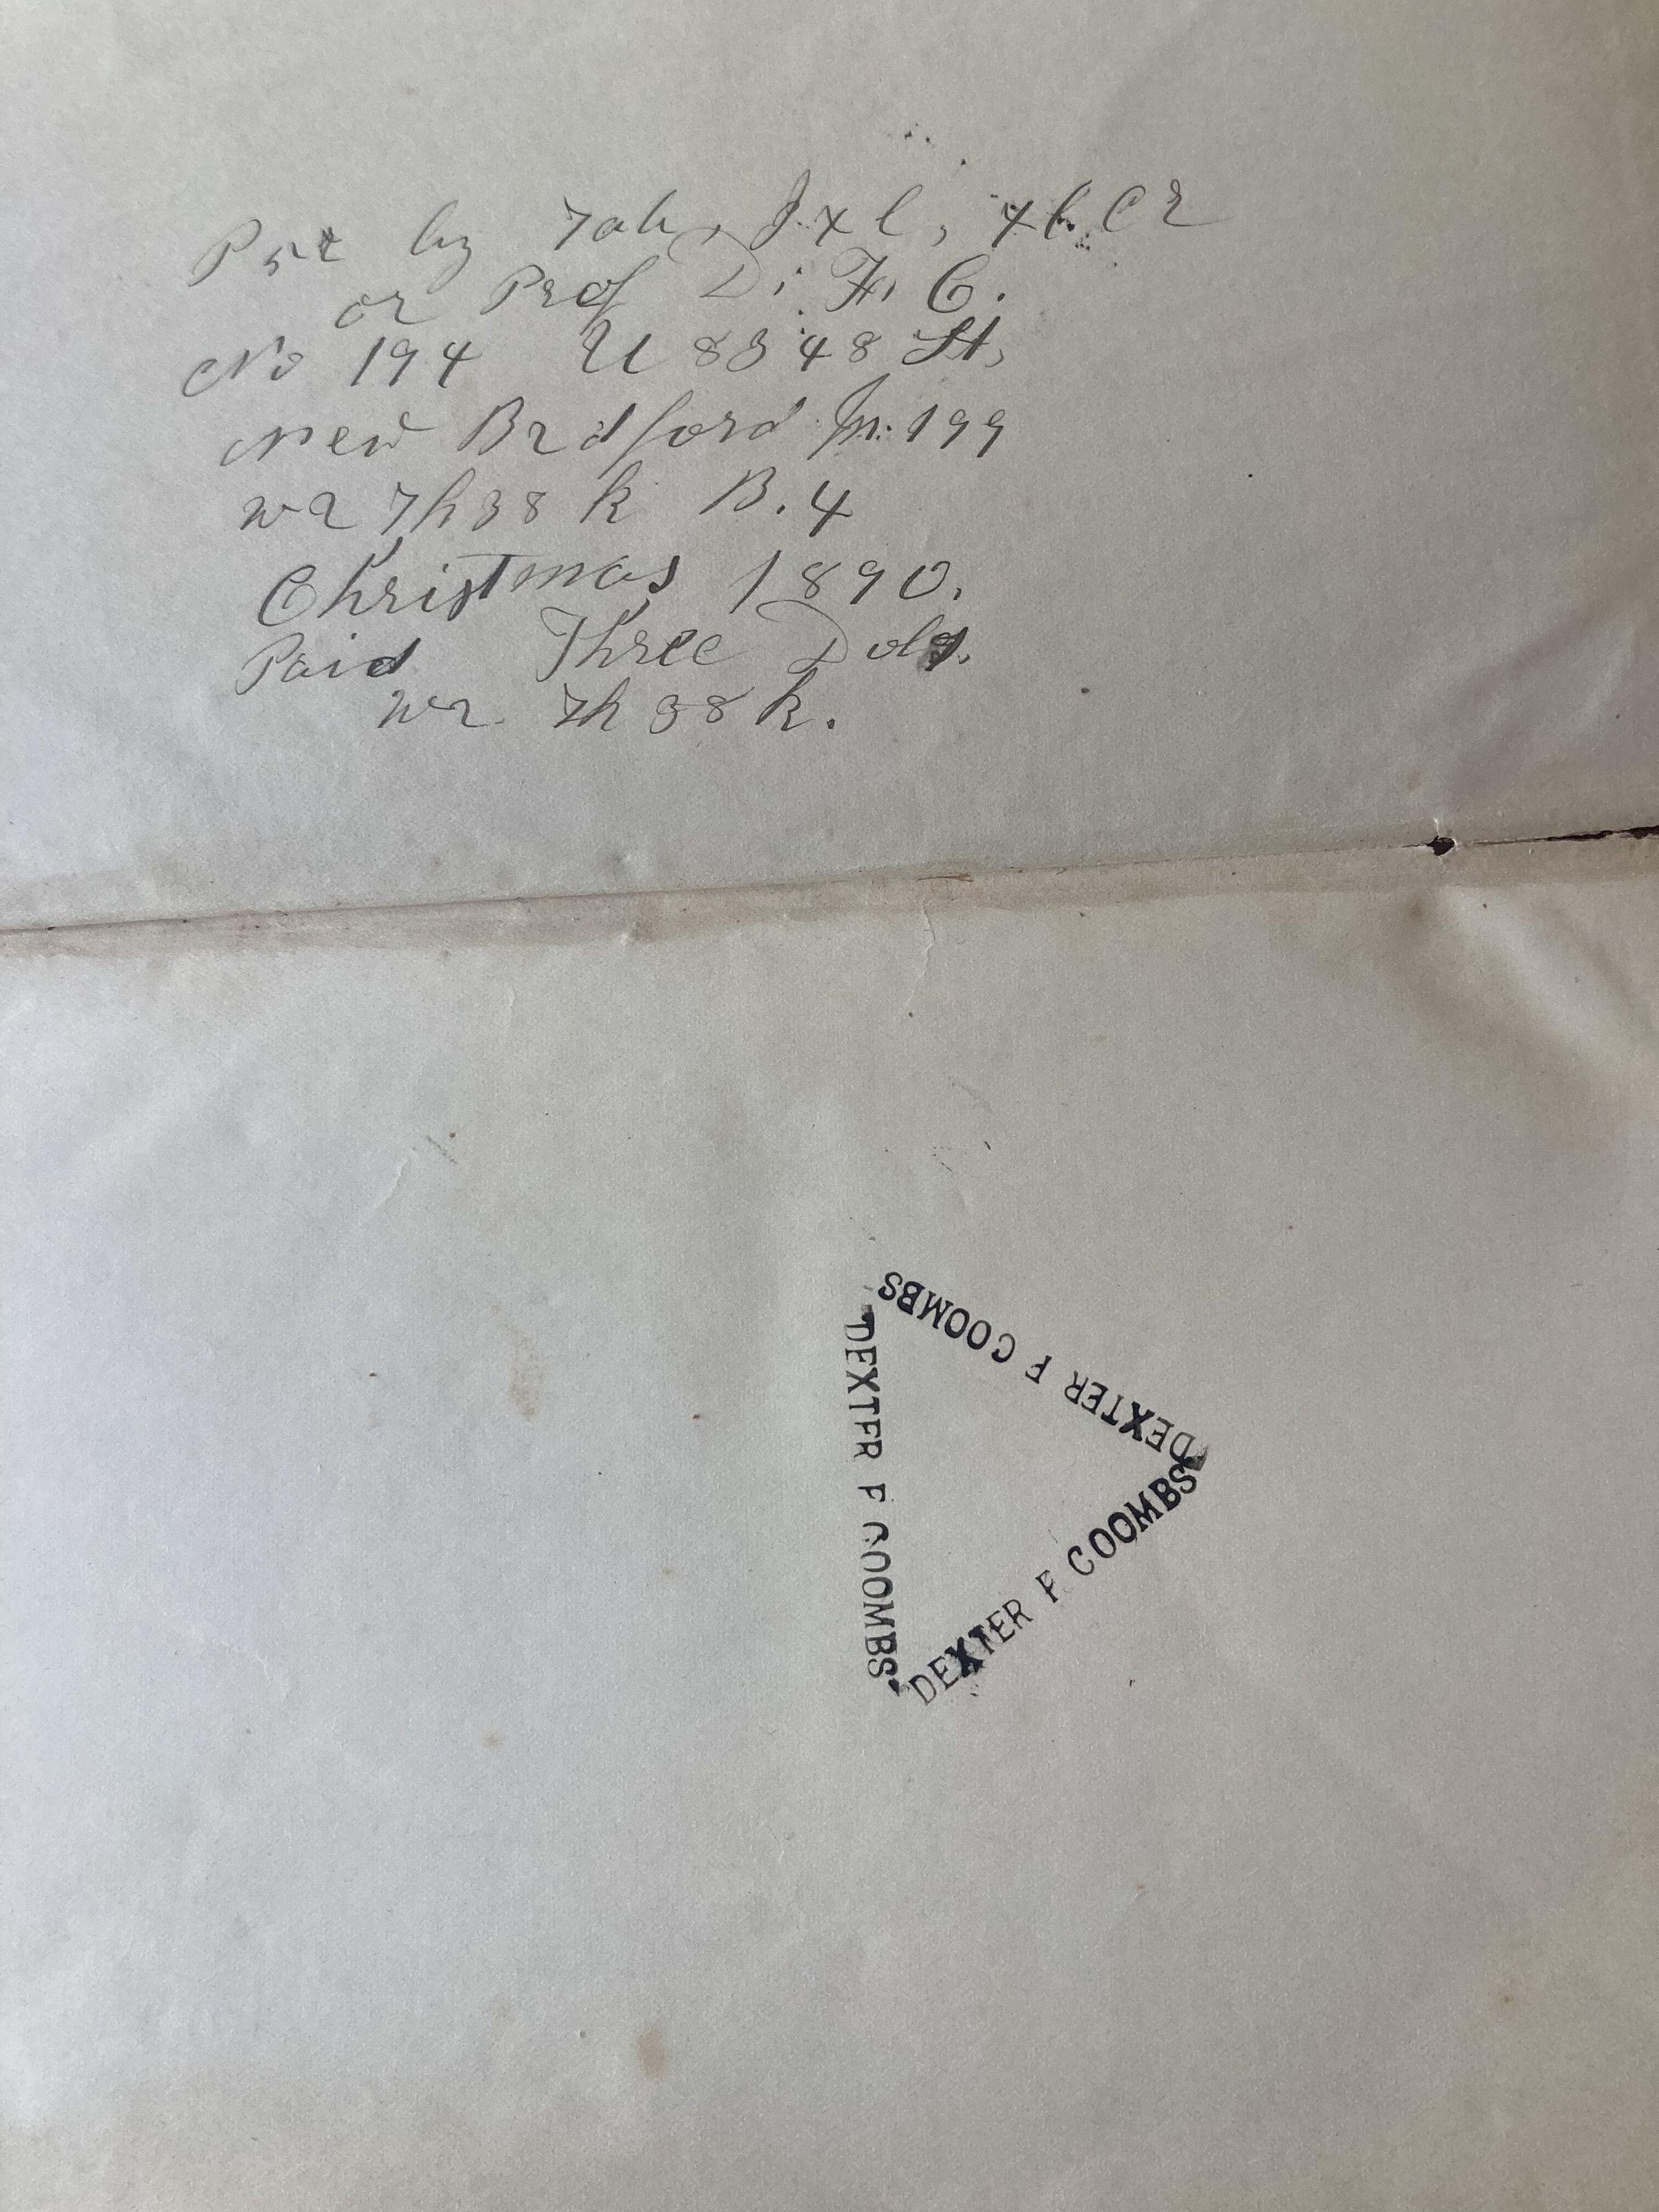 Prt by 7ah, Jxl, xl. C2
or Prof D. F. C.
No 194 U 8348 St,
New Bedford M: 199
w2 7h38 k B. 4
Christmas 1890.
Paid Three Dols.
w2 7h38k.
DEXTER F COOMBS
DEXTER F COOMBS
DEXTER F COOMBS